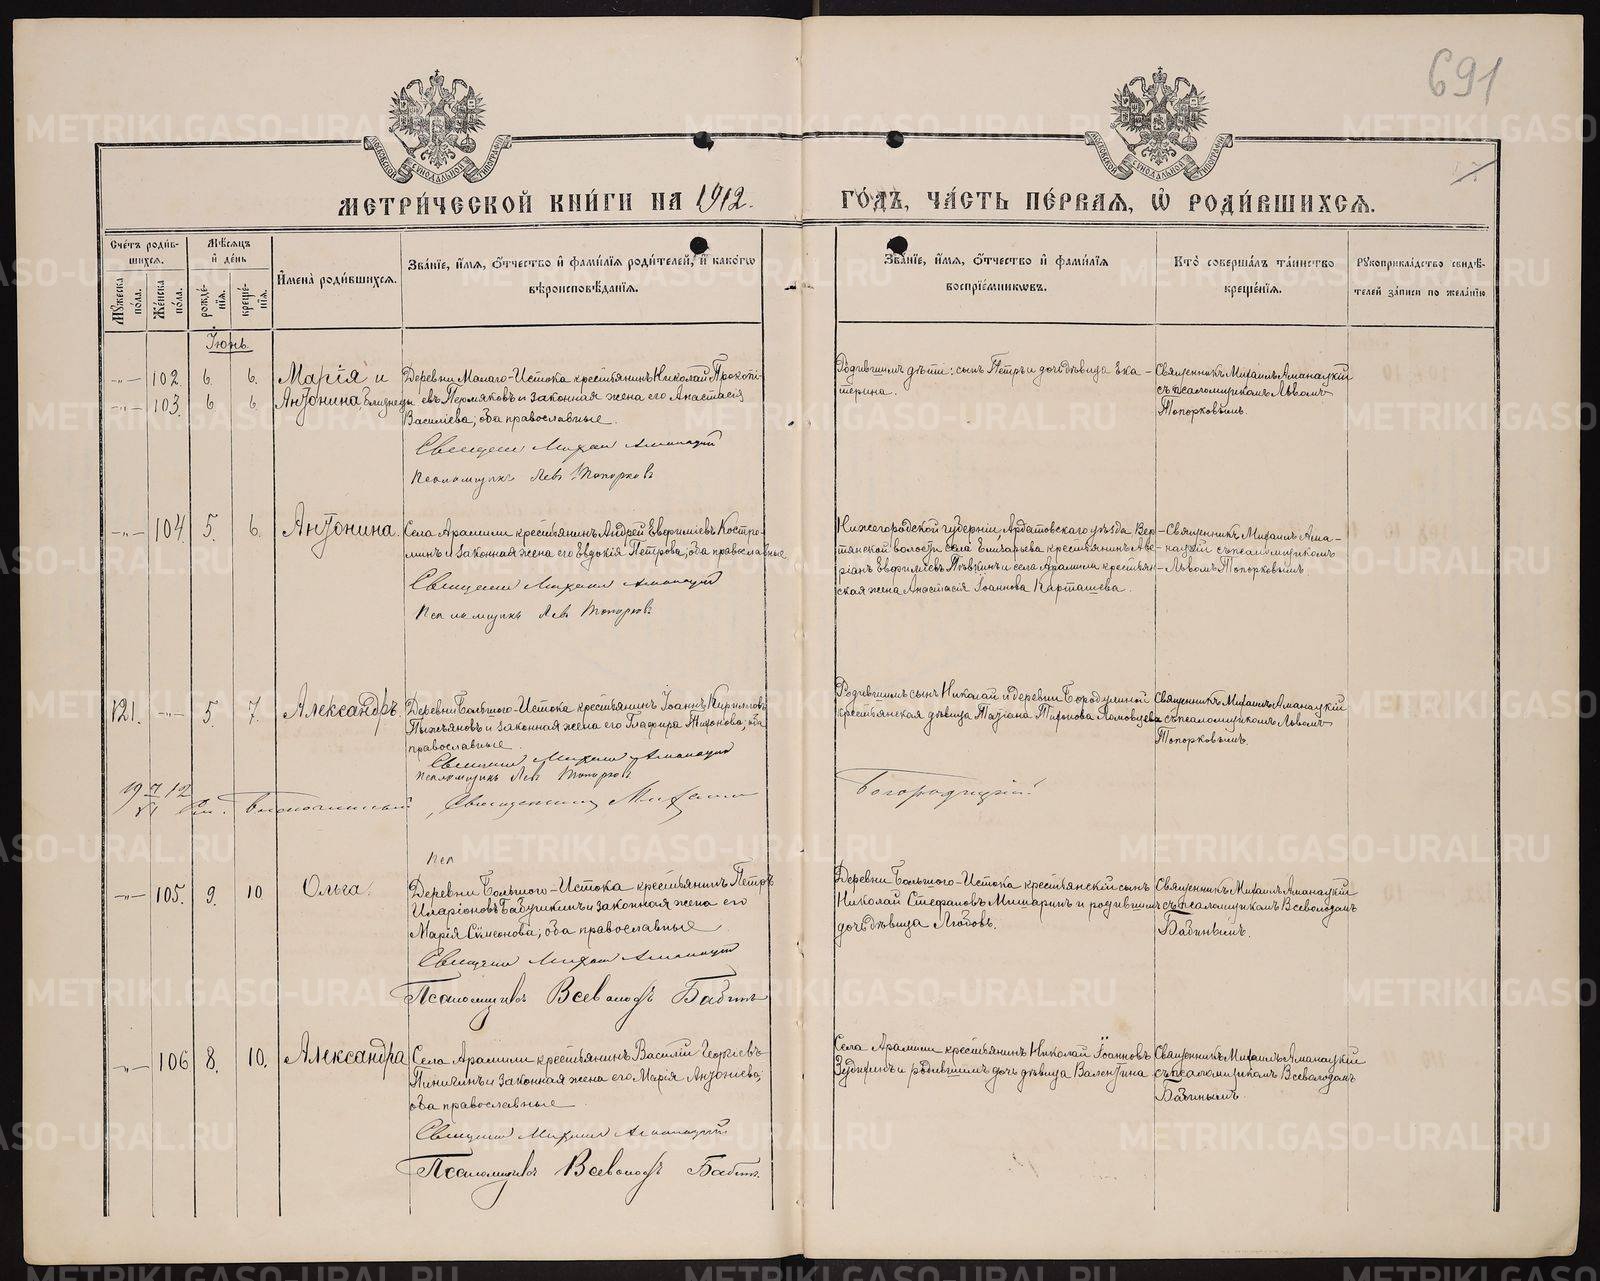 691
МЕТРИ́ЧЕСКОЙ КНИ́ГИ НА 1912.
ГО́ДЪ, ЧА́СТЬ ПЕ́РВАЯ, Ѡ РОДИ́ВШИХСЯ.
Сче́тъ роди́вшихся.
Мꙋжеска по́ла.
Же́нска по́ла.
Мѣсяцъ и день
рожде́нїя.
креще́нїя.
Имена̀ роди́вшихся.
Зва́нїе, и́мя, о́тчество и фами́лїя роди́телей, и како́гѡ
вѣроисповѣ́данїя.
Зва́нїе, и́мя, о́тчество и фами́лїя
воспрїе́мникѡвъ.
Кто̀ соверша́лъ та́инство
креще́нїя.
Рꙋкоприкла́дство свидѣ́-
телей за́писи по жела́нїю
Іюнь.
-"- 102. 6. 6. Марія и
-"- 103. 6 6 Антонина, близнецы
Деревни Малаго-Истока крестьянинъ Николай Прокопі-
евъ Пермяковъ и законная жена его Анастасія
Васильева, оба православные.
Священ Михаи Аманацкій
Псаломщикъ Левъ Топорковъ
Родившимъ дѣти: сынъ Петръ и дочь дѣвица Ека-
терина.
Священникъ Михаилъ Аманацкій
съ псаломщикомъ Львомъ
Топорковымъ.
-"- 104. 5. 6. Антонина.
Села Арамили крестьянинъ Андрей Евфиміевъ Костро-
минъ и законная жена его Евдокія Петрова, оба православные
Священ Михаилъ Аманацкій
Псаломщикъ Левъ Топорковъ
Нижегородской губерніи, Ардатовскаго уѣзда Вер-
тянской волости села Елизарьева крестьянинъ Аве-
ріанъ Евфиміевъ и села Арамили крестьян-
ская жена Анастасія Іоаннова Карташева.
Священникъ Михаилъ Ама-
нацкій съ псаломщикомъ
Львомъ Топорковымъ
121. -"- 5. 7. Александръ.
Деревни Большого-Истока крестьянинъ Іоаннъ Кирилловъ
и законная жена его Глафира Тихонова, оба
православные.
Священ Михаилъ Аманацкій
Псаломщикъ Левъ Топорковъ
Родившимъ сынъ Николай и деревни Бородулиной
крестьянская дѣвица Татіана Тиронова Ломовцева
Священникъ Михаилъ Аманацкій
съ псаломщикомъ Львомъ
Топорковымъ.
19 7/VI 12 Священникъ Михаилъ
Богородицкій.
Пса
-"- 105. 9. 10 Ольга.
Деревни Большого-Истока крестьянинъ Петръ
Иларіоновъ Бабушкинъ и законная жена его
Марія Сѵмеонова; оба православные
Священ Михаилъ Аманацкій
Псаломщикъ Всеволодъ Бабинъ
Деревни Большого-Истока крестьянскій сынъ
Николай Стефановъ Мишаринъ и родившимъ
дочь дѣвица Любовь.
Священникъ Михаилъ Аманацкій
съ псаломщикомъ Всеволодомъ
Бабинымъ.
-"- 106 8. 10. Александра
Села Арамили крестьянинъ Василій Георгіевъ
Пинигинъ и законная жена его Марія Антоніева;
оба православные
Священ Михаилъ Аманацкій
Псаломщикъ Всеволодъ Бабинъ.
Села Арамили крестьянинъ Николай Іоанновъ
и родившимъ дочь дѣвица Валентина
Священникъ Михаилъ Аманацкій
съ псаломщикомъ Всеволодомъ
Бабинымъ.
METRIKI.GASO-URAL.RU